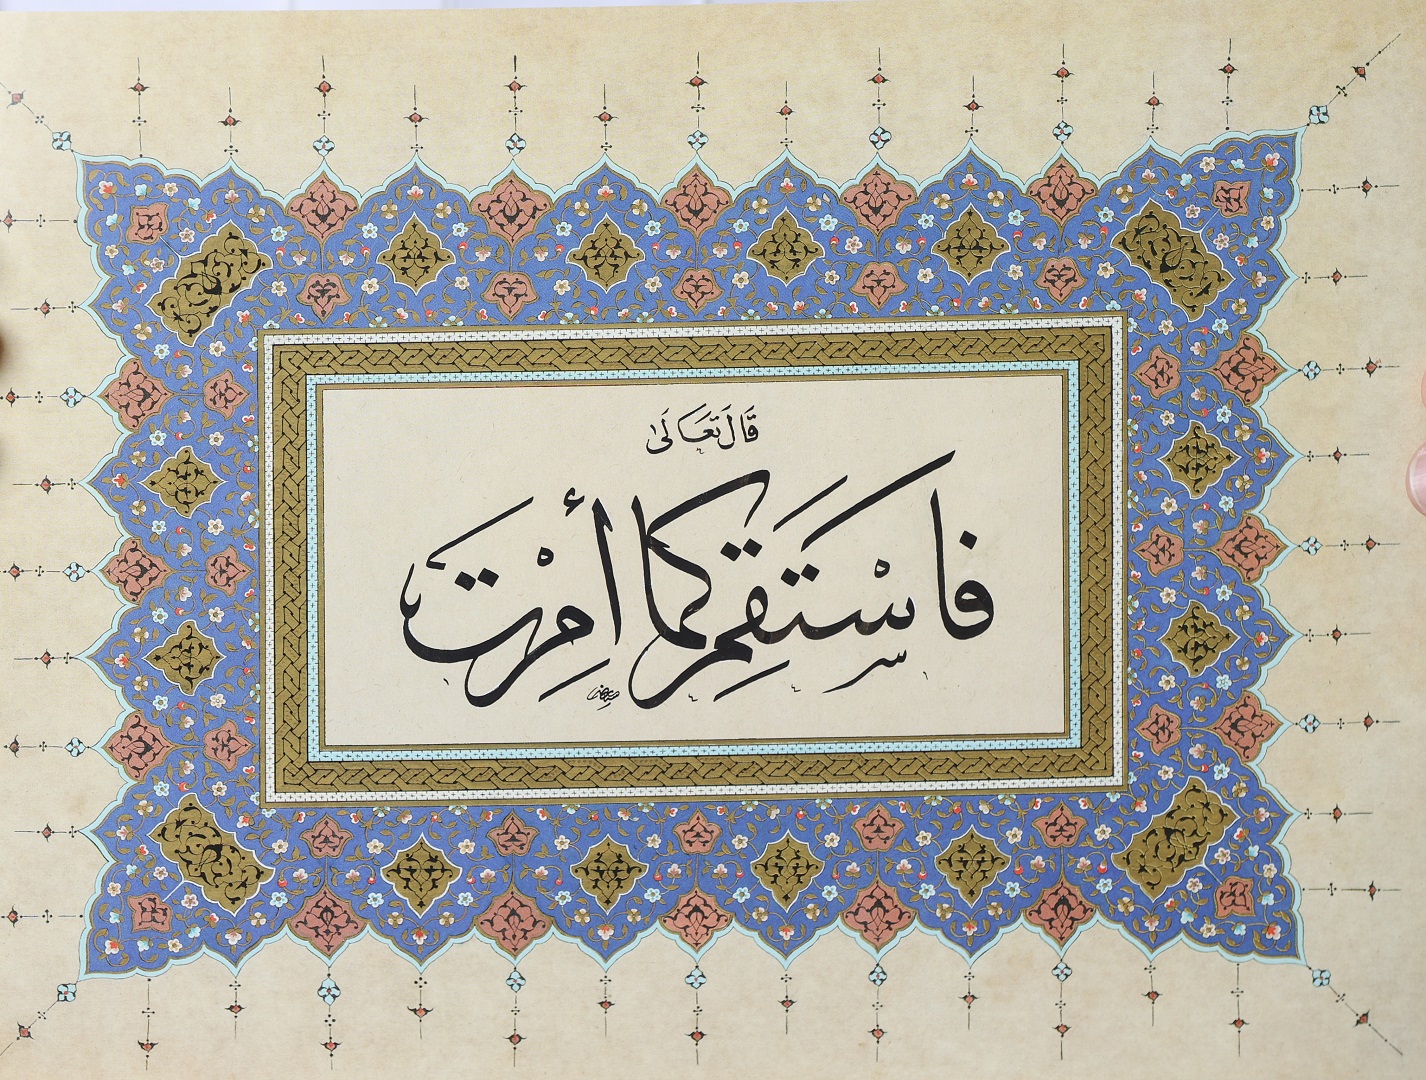 قَالَ تَعَالَىٰ
فَاسْتَقِمْ كَمَا أُمِرْتَ